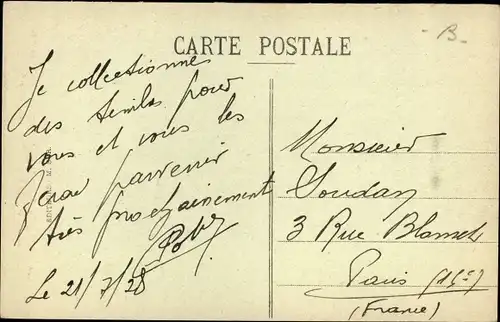 B
CARTE POSTALE
Je collectionne
des timbres pour
vous et vous les
ferai parvenir
très prochainement
Le 21/7/28
Monsieur
Soudan
3 Rue
Paris (15e)
(France)